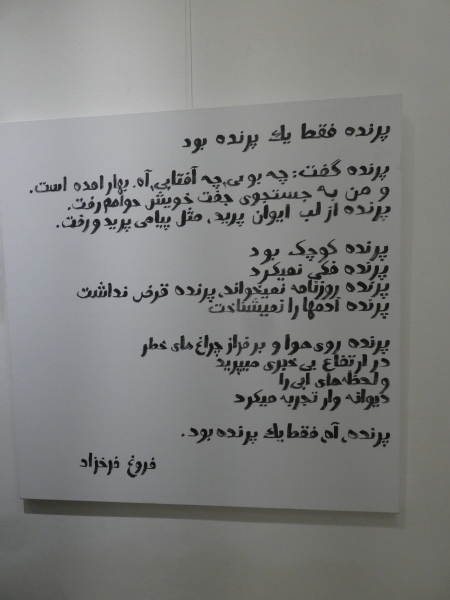 پرنده فقط یك پرنده بود
پرنده گفت: چه بویی، چه آفتابی، آه. بهار امده است.
و من به جستجوی جفت خویش خواهم رفت.
پرنده از لب ایوان پرید، مثل پیامی پرید و رفت.
پرنده کوچک بود
پرنده فکر نمیکرد
پرنده روزنامه نمیخواند، پرنده قرض نداشت
پرنده آدمها را نمیشناخت
پرنده روی هوا و بر فراز چراغ های خطر
در ارتفاع بی خبری میپرید
و لحظه های ابی را
دیوانه وار تجربه میکرد
پرنده، آه، فقط یك پرنده بود.
فروغ فرخزاد